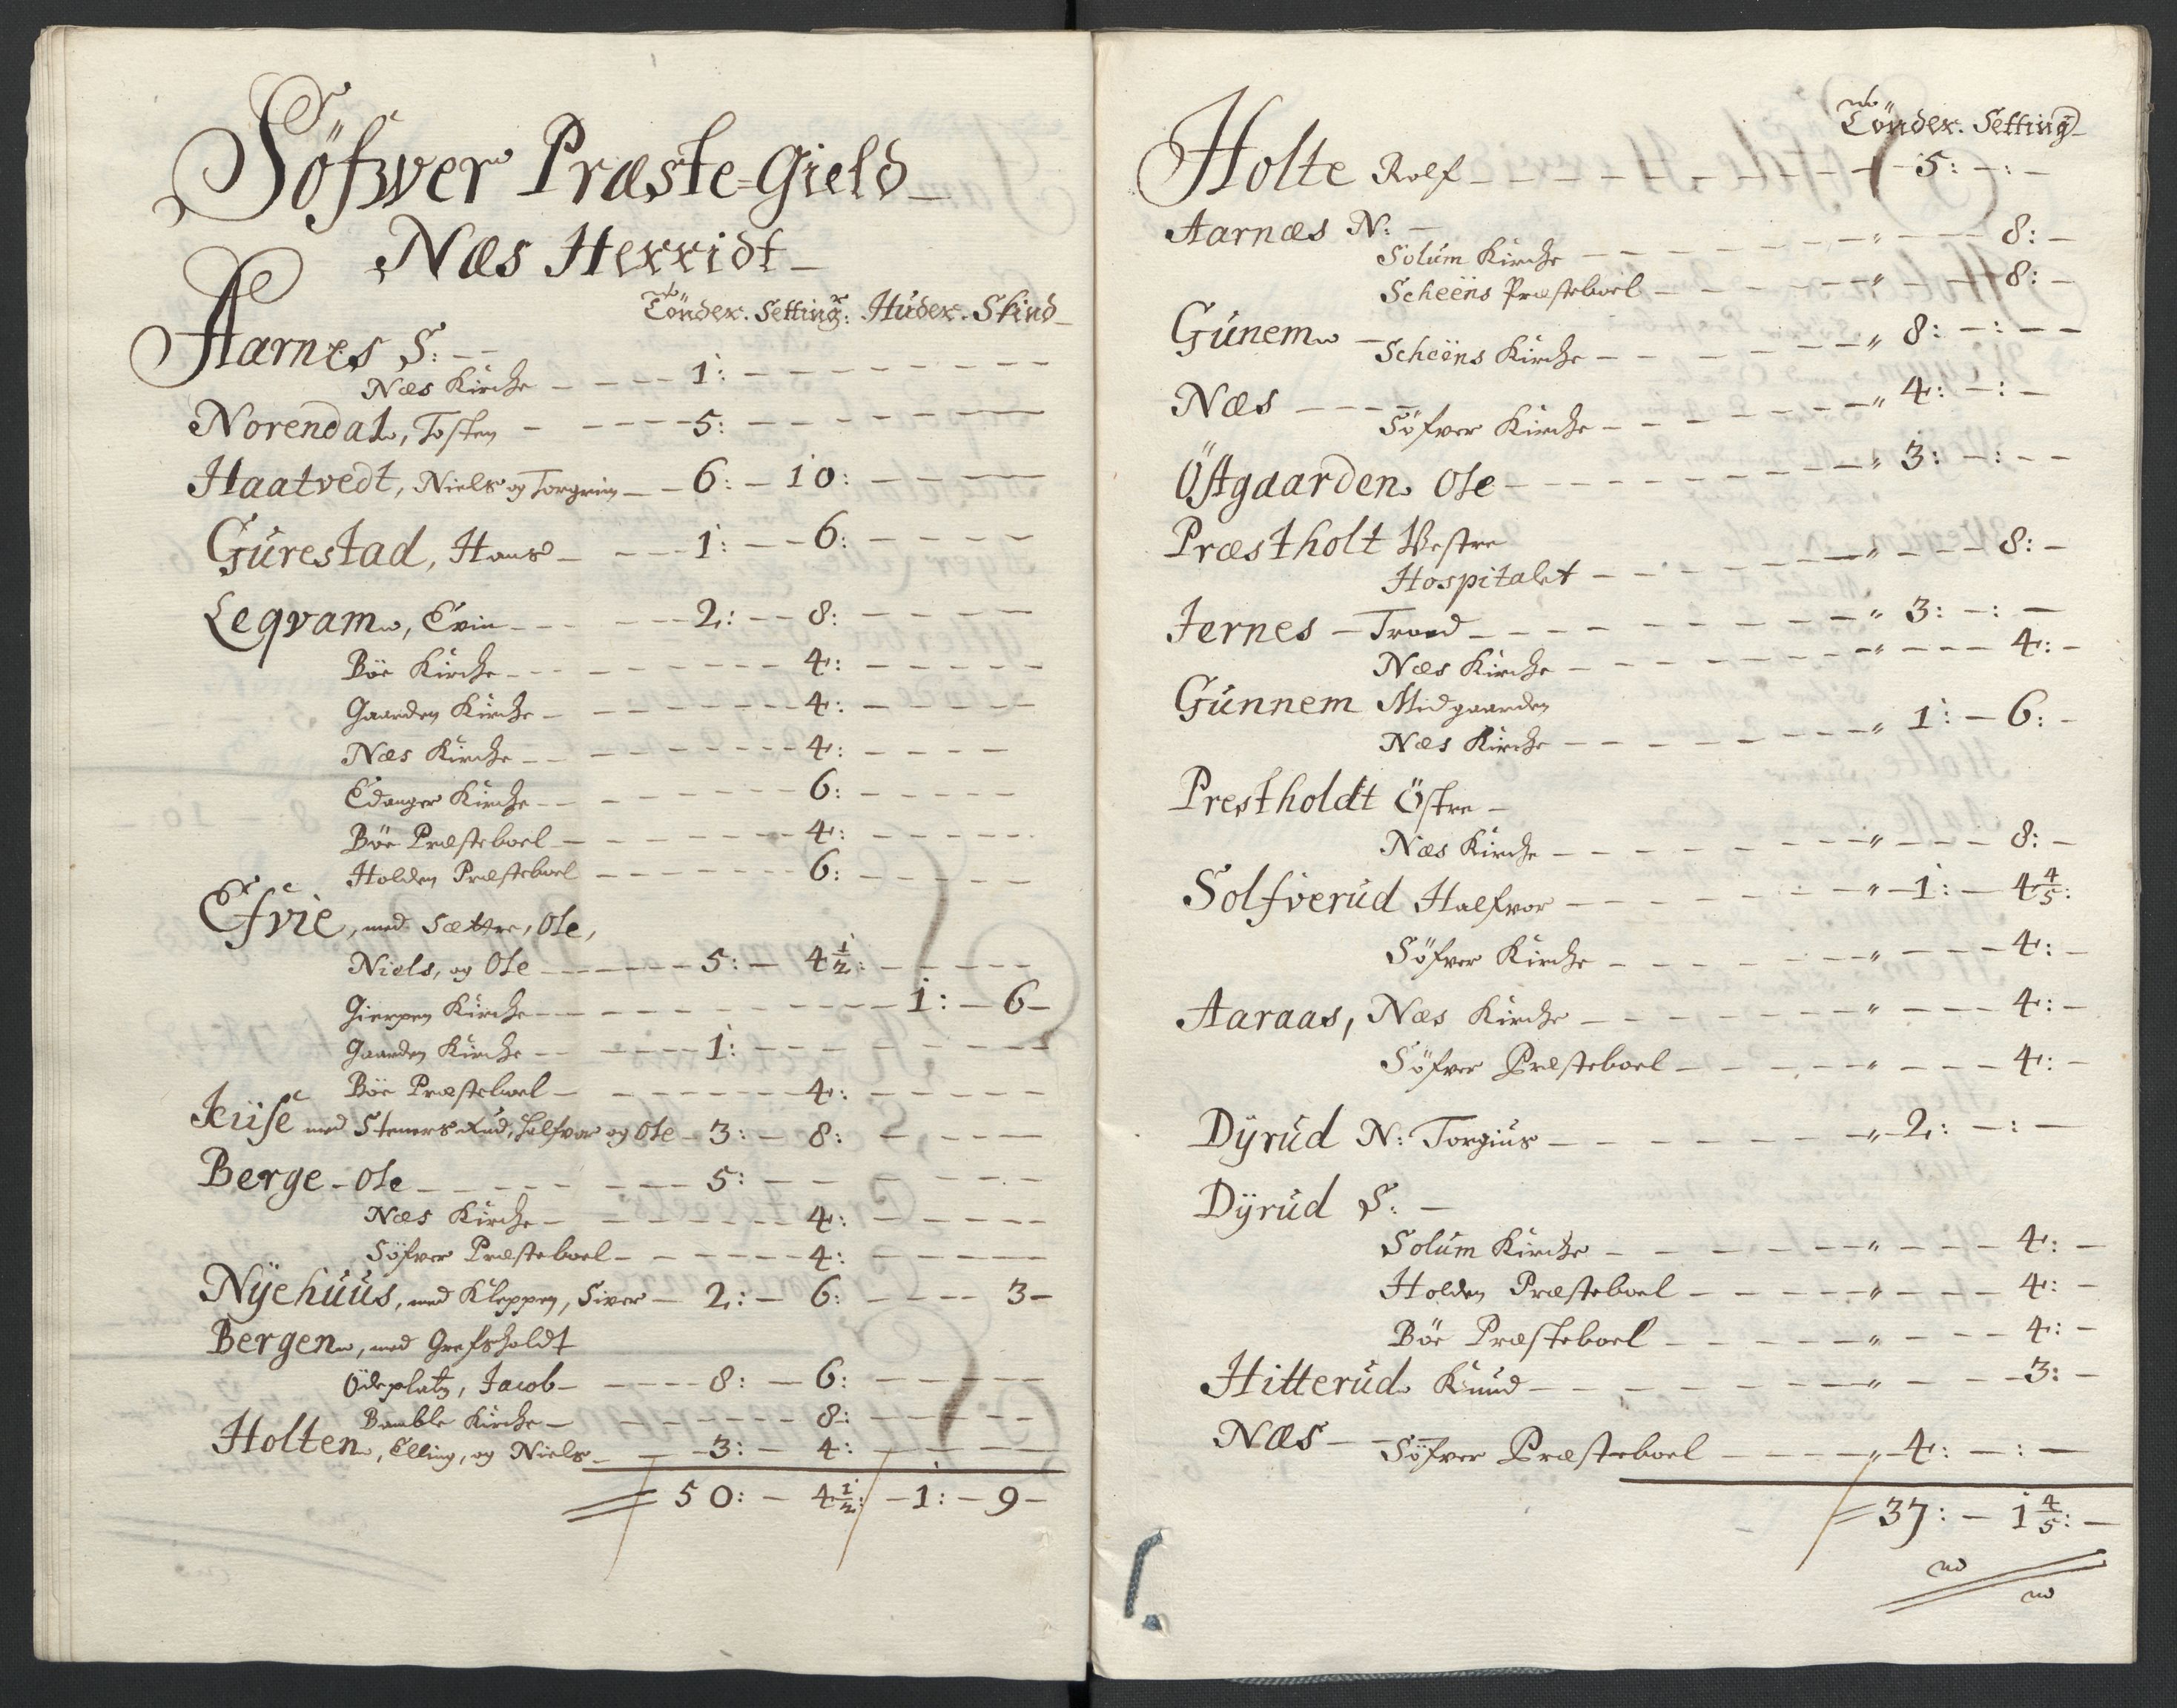 Söfwer Præste-Gield
Næs Herridt
Tönder. Setting: Huder. Skind
Aarnes S:
Næs Kirche 1:
Norendal, Tosten 5:
Haatvedt, Niels og Torgrim 6: 10:
Gurestad, Hans 1: 6:
Leqvam, Evin 2: 8:
Böe Kirche 4:
Gaarden Kirche 4:
Næs Kirche 4:
Edanger Kirche 6:
Böe Præsteboel 4:
Holden Præsteboel 6:
Efvie, med Sættre, Ole,
Niels, og Ole 5: 4 1/2:
Gierpen Kirche 1: 6
Gaarden Kirche 1:
Böe Præsteboel 4:
med Steners Rud, Halfvor og Ole 3: 8:
Berge Ole 5:
Næs Kirche 4:
Söfver Præsteboel 4:
Nÿehuus, med Kleppen, Siver 2: 6: 3
Bergen, med Grefsholdt
Ödeplatz, Jacob 8: 6:
Bamble Kirche 8:
Holten, Elling, og Niels 3: 4:
50: 4 1/2: 1: 9
Tönder. Setting
Holte Rolf 5:
Aarnæs N:
Solum Kirche " 8:
Scheens Præsteboel " 8:
Gunem
Scheens Kirche " 8:
Næs
Söfver Kirche " 4:
Östgaarden Ole " 3:
Præstholt Vestre
Hospitalet " 8:
Jernes Trond " 3:
Næs Kirche " 4:
Gunnem Midgaarden
Næs Kirche " 1: 6:
Prestholdt Östre
Næs Kirche " 8:
Solfverud Halfvor " 1: 4 4/5:
Söfver Kirche " 4:
Aaraas, Næs Kirche " 4:
Söfver Præsteboel " 4:
Dÿrud N: Torgius " 2:
Dÿrud S:
Solum Kirche " 4:
Holden Præsteboel " 4:
Böe Præsteboel " 4:
Hitterud Knud " 3:
Næs Söfver Præsteboel " 4:
37: 1 4/5: